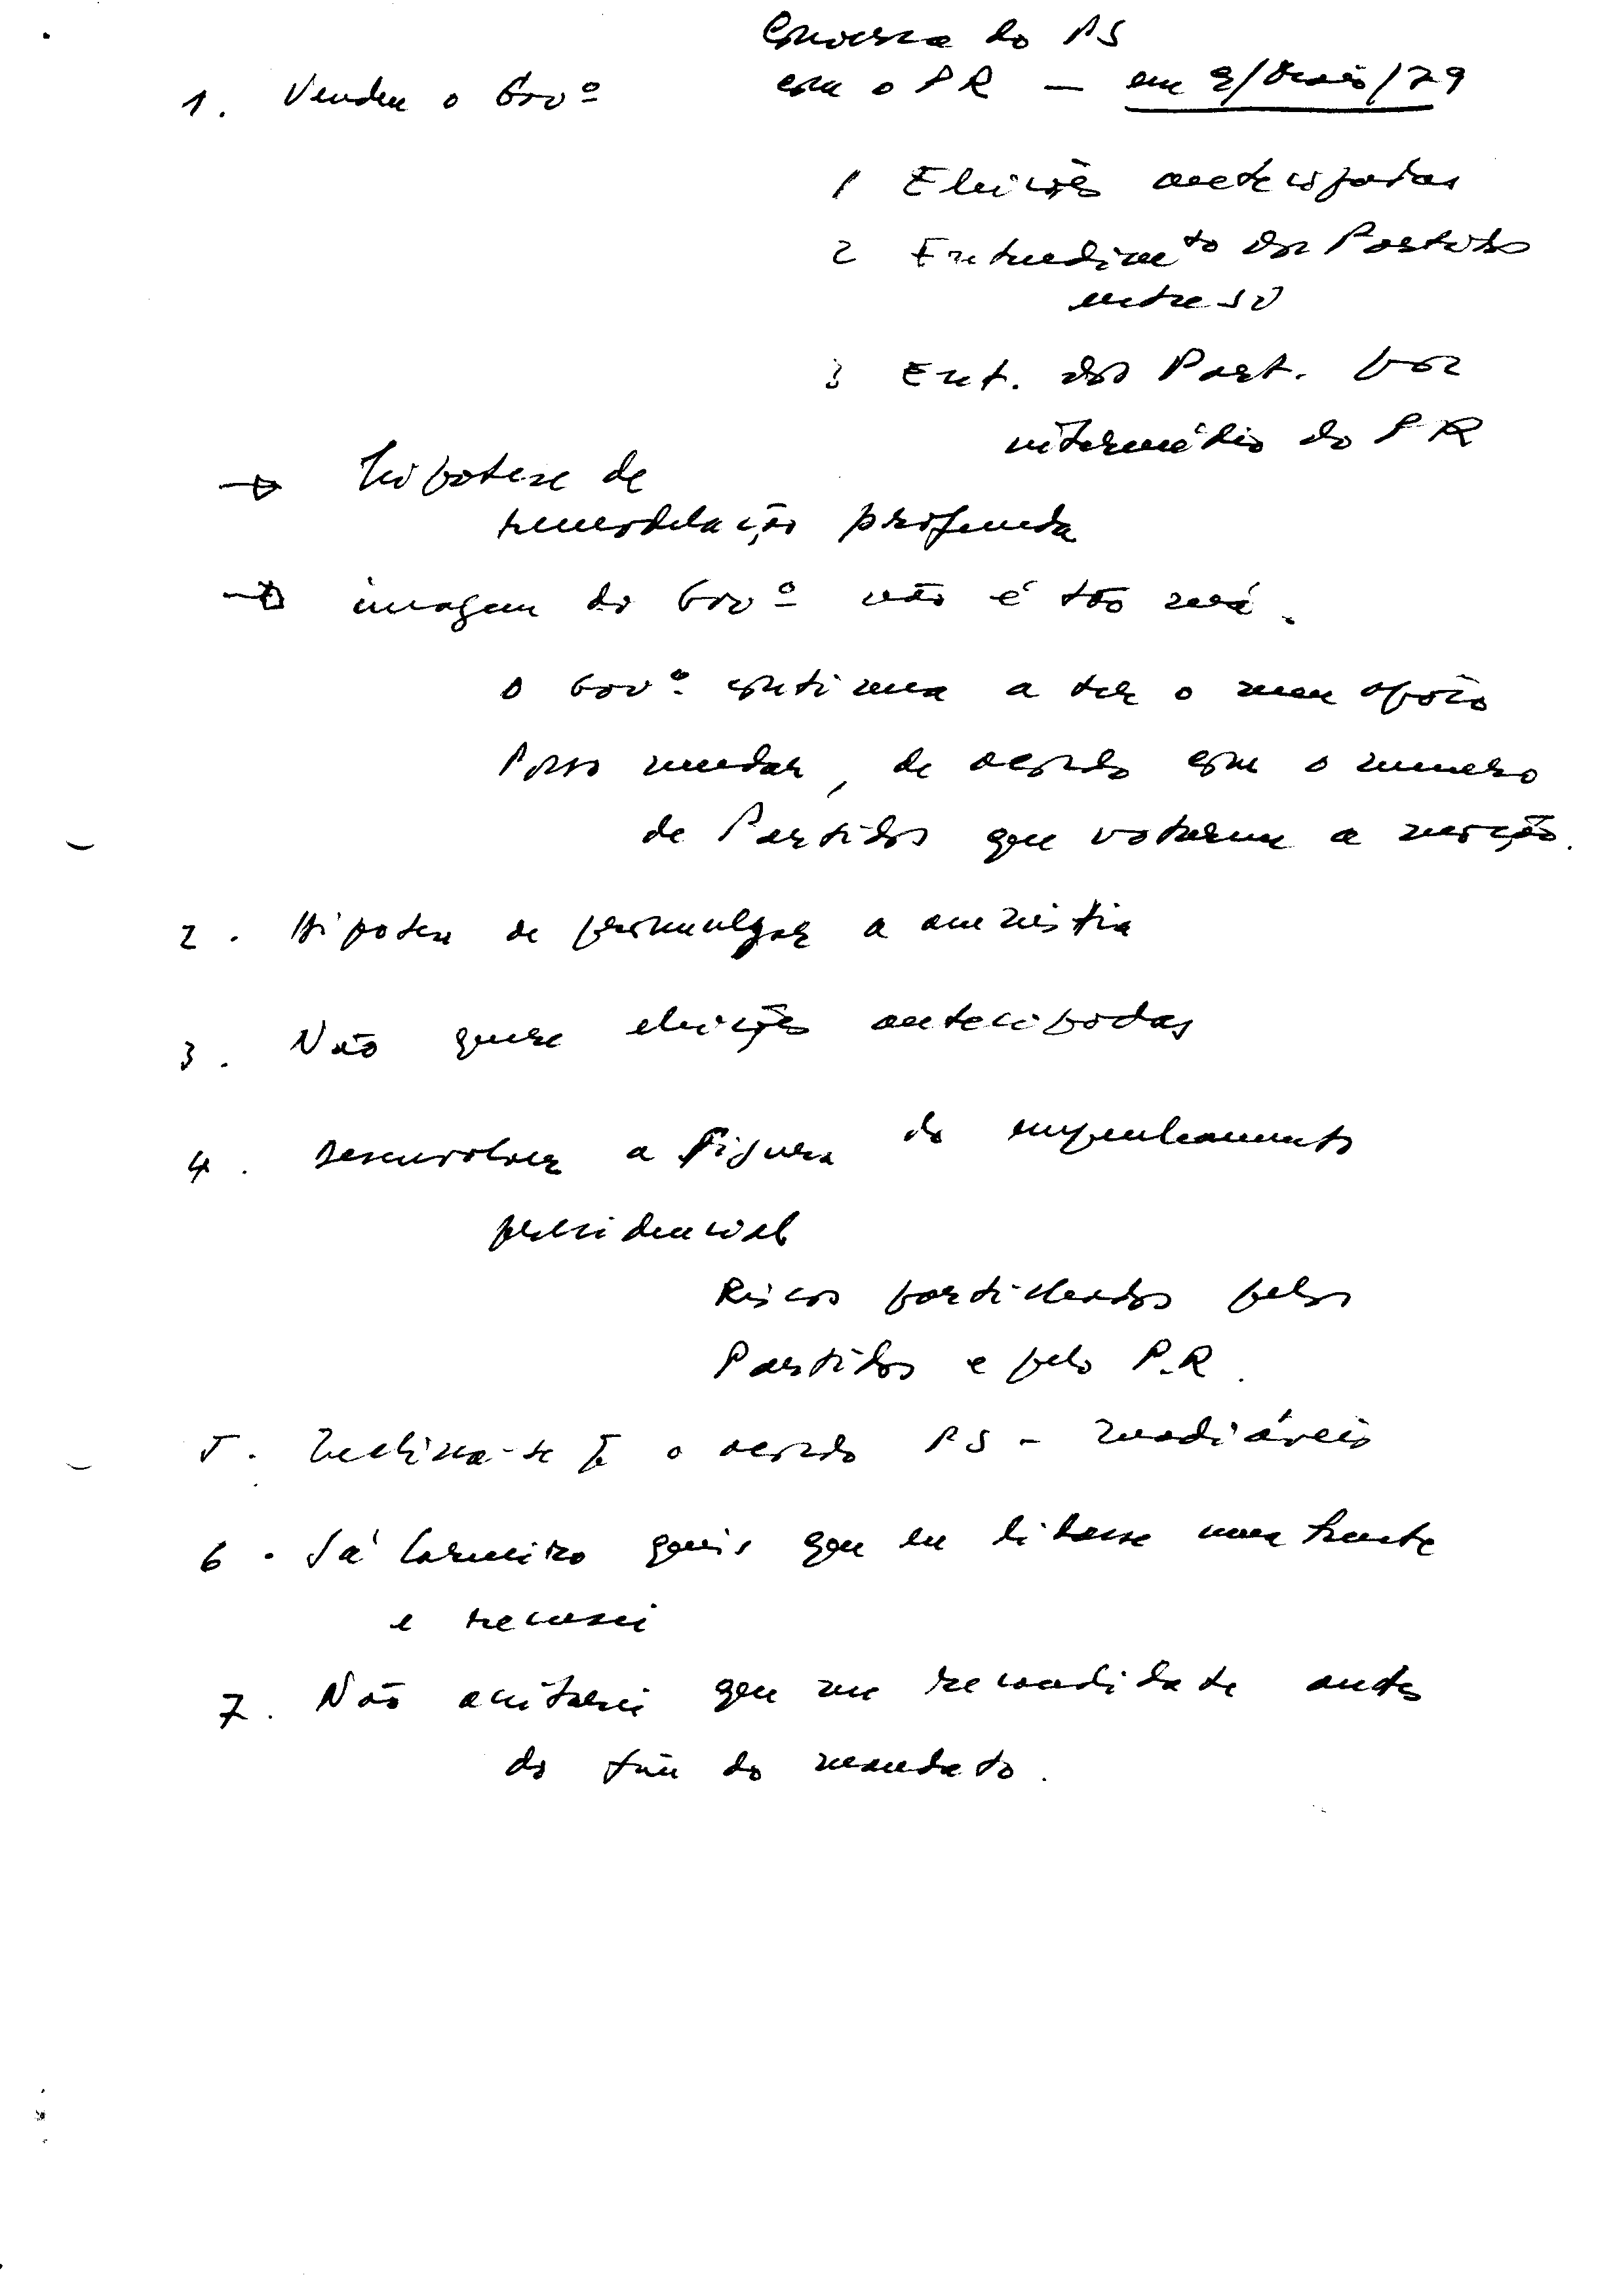 Conversa do PS
com o PR — em 9/Maio/79
1. Vender o Govº
1 Eleições antecipadas
2 Entendimto dos Partidos
entre si
3 Ent. dos Part. por
intermédio do PR
→ hipotese de
remodelação profunda
→ imagem do Govº não é tão má.
O Govº continua a ter o meu apoio
Posso mudar, de acordo com o numero
de Partidos que votarem a moção.
2. Hipotese de promulgar a amnistia
3. Não quere eleições antecipadas
4. Desenvolver a figura do empenhamento
presidencial
Riscos partilhados pelos
Partidos e pelo P.R.
5. Inclina-se p. o acordo PS - Inadiáveis
6. Sá Carneiro quis que eu liderasse uma frente
e recusei
7. Não aceitarei que me recandidate antes
do fim do mandato.